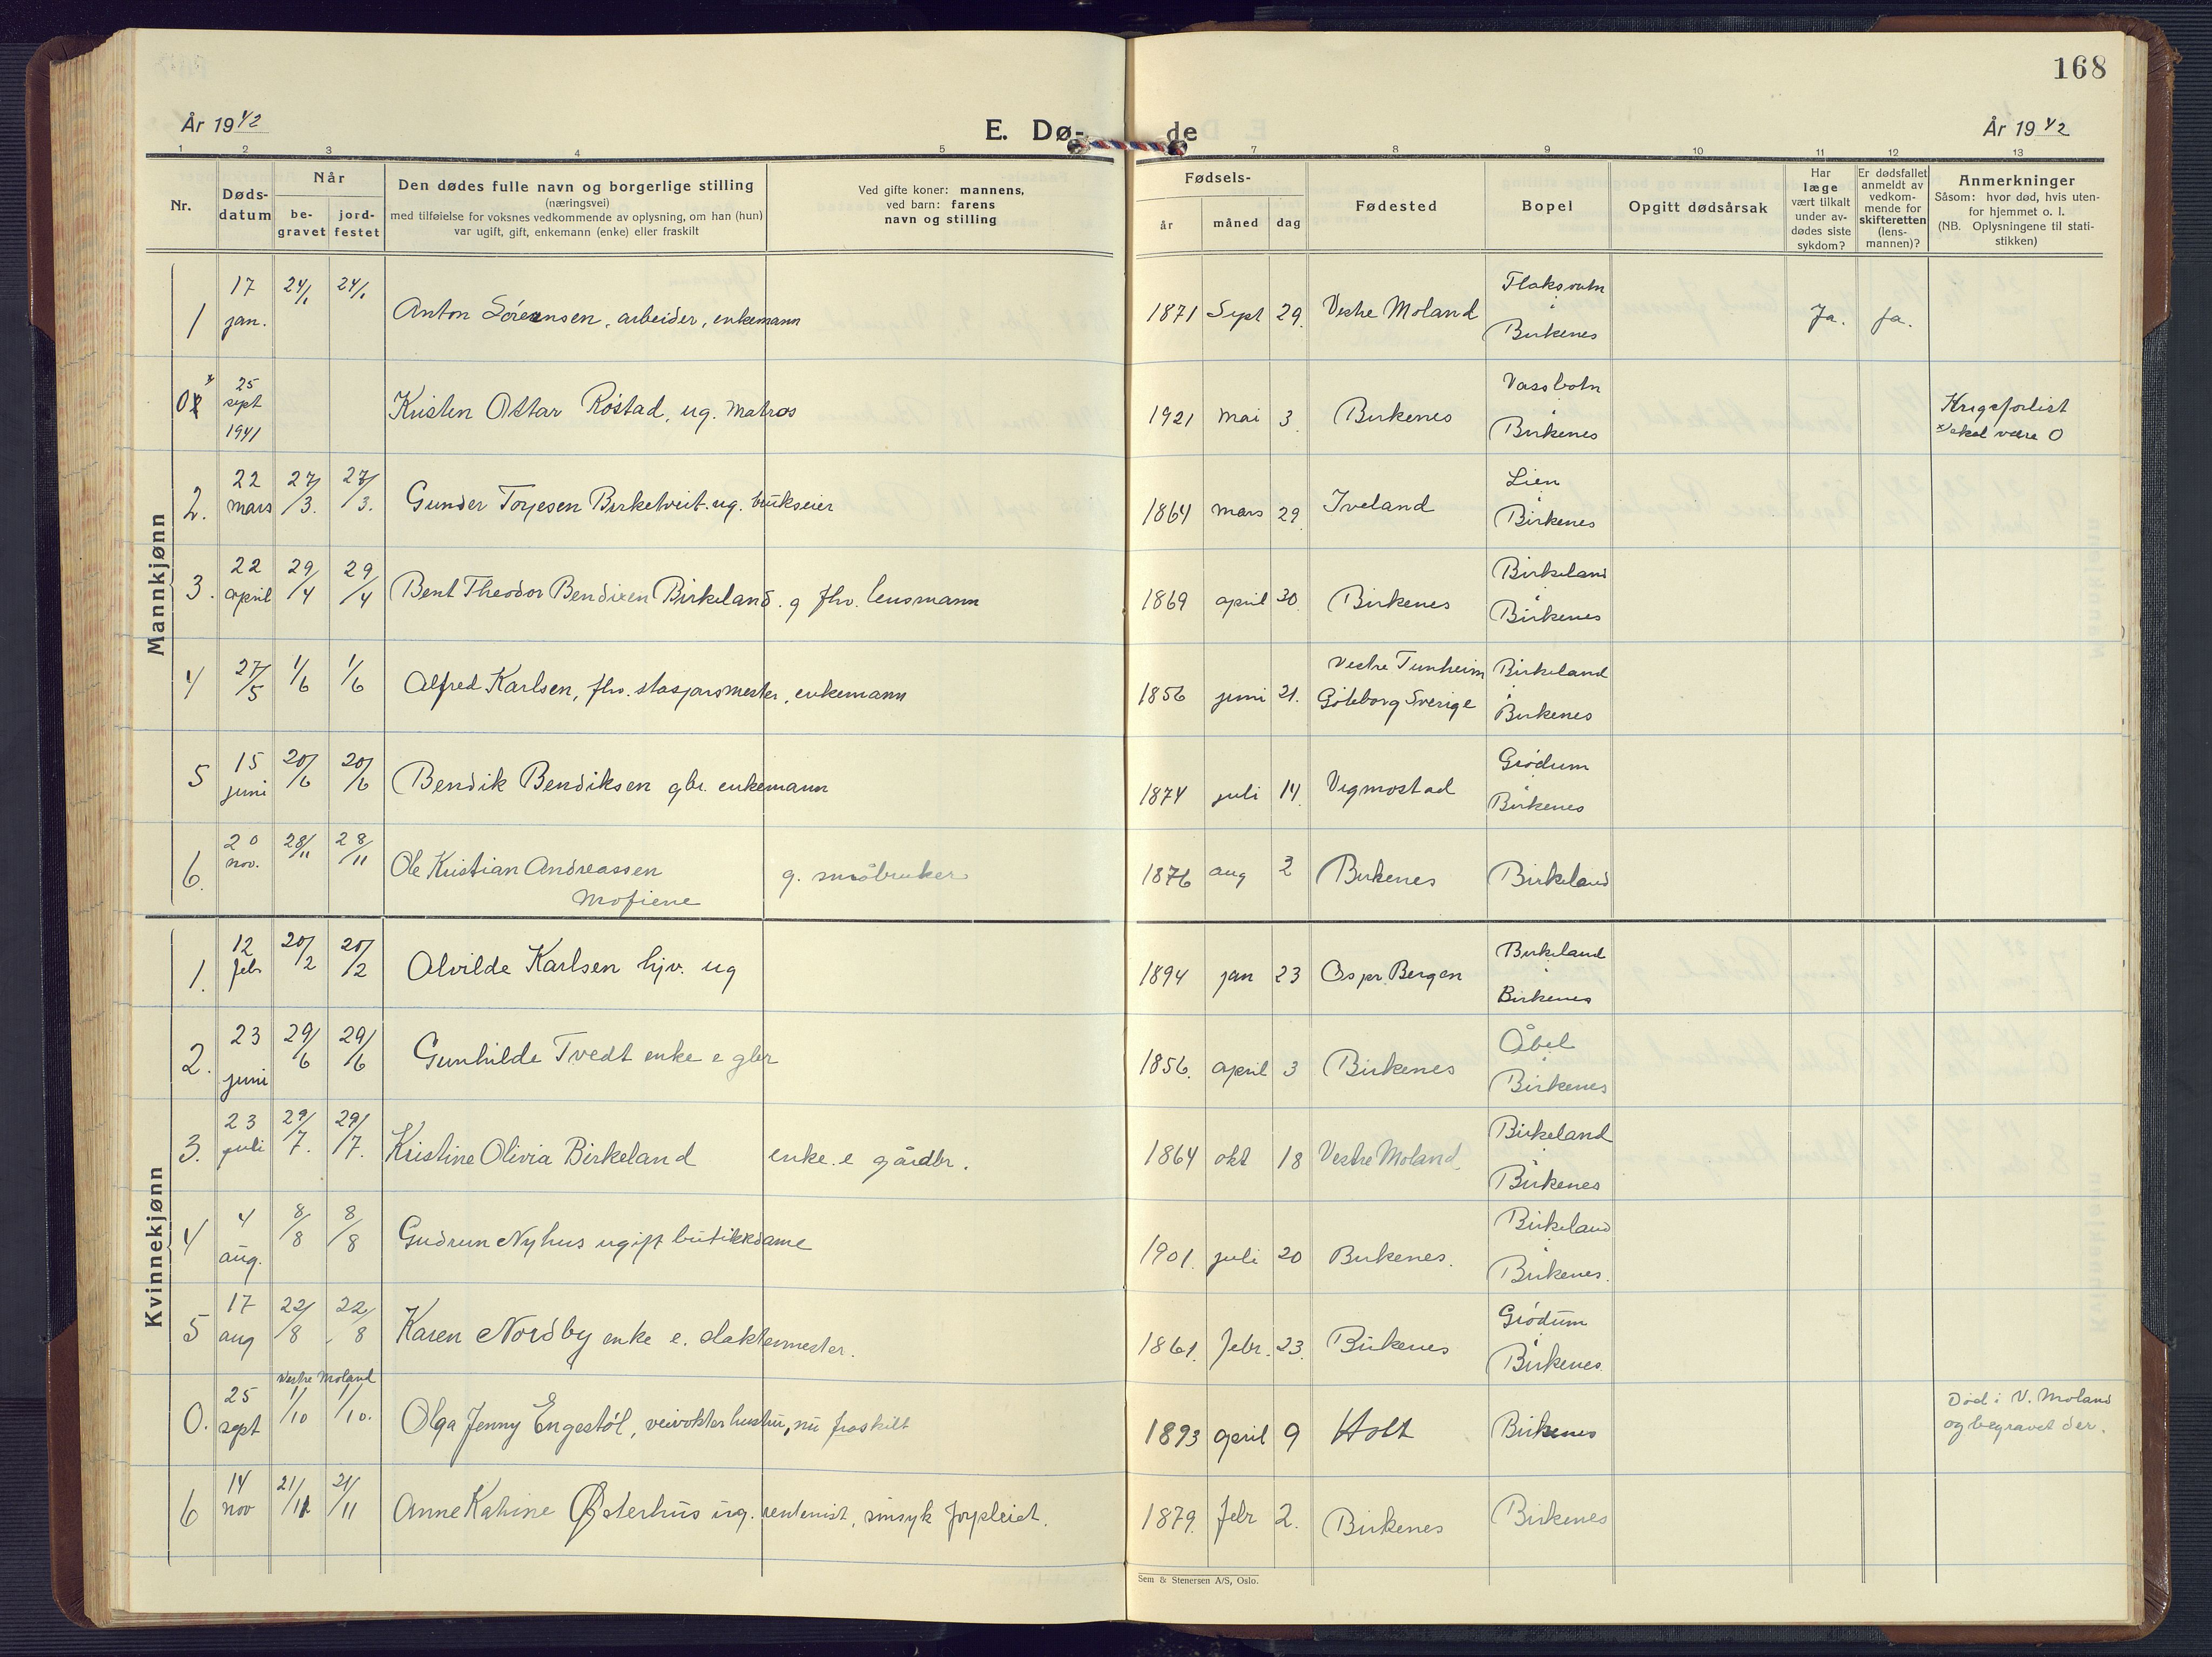 168
År 1942
E. Dø-
de
År 1942
1 2 3 4 5 7 8 9 10 11 12 13
Nr.
Døds-
datum
Når
be-
gravet
jord-
festet
Den dødes fulle navn og borgerlige stilling
(næringsvei)
med tilføielse for voksnes vedkommende av oplysning, om han (hun)
var ugift, gift, enkemann (enke) eller fraskilt
Ved gifte koner: mannens,
ved barn: farens
navn og stilling
Fødsels-
år måned dag
Fødested
Bopel
Opgitt dødsårsak
Har
læge
vært tilkalt
under av-
dødes siste
sykdom?
Er dødsfallet
anmeldt av
vedkom-
mende for
skifteretten
(lens-
mannen)?
Anmerkninger
Såsom: hvor død, hvis uten-
for hjemmet o. l.
(NB. Oplysningene til stati-
stikken)
Mannkjønn
1 17 jan. 24/1 24/1 Anton Sørensen, arbeider, enkemann 1871 Sept 29. Vestre Moland Flaksvatn i Birkenes Ja. Ja.
0 x 25 sept 1941 Kristen Ottar Røstad, ug. matros 1921 mai 3. Birkenes Vassbotn i Birkenes Krigsforlist
x skal være 0
2. 22 mars 27/3. 27/3. Gunder Torjesen Birketveit. ug. brukseier 1864 mars 29. Iveland Lien i Birkenes
3. 22 april 29/4 29/4 Bent Theodor Bendixen Birkeland. g fhv. lensmann 1869 april 30. Birkenes Birkeland i Birkenes
4 27/5 1/6 1/6 Alfred Karlsen, fhv. stasjonsmester, enkemann 1856 juni 21. Vestre Tunheim Göteborg Sverige Birkeland i Birkenes
5 15 juni 20/6 20/6 Bendik Bendiksen gbr. enkemann 1874 juli 14. Vigmostad Grødum i Birkenes
6. 20 nov. 28/11 28/11 Ole Kristian Andreassen
Mofiene g. småbruker 1876 aug 2 Birkenes Birkeland
Kvinnekjønn
1. 12 febr 20/2 20/2 Alvilde Karlsen hjv. ug 1894 jan 23 Os pr. Bergen Birkeland i Birkenes
2. 23 juni 29/6 29/6 Gunhilde Tvedt enke e gbr 1856. april 3 Birkenes Åbel i Birkenes
3. 23 juli 29/7. 29/7. Kristine Olivia Birkeland enke. e gårdbr. 1864 okt 18 Vestre Moland. Birkeland i Birkenes
4 4 aug. 8/8 8/8 Gudrun Nyhus ugift butikkdame 1901. juli 20 Birkenes. Birkeland i Birkenes.
5 17 aug 22/8 22/8 Karen Nordby enke e. slaktermester. 1861. febr. 23. Birkenes Grødum i Birkenes
Vestre Moland
0. 25 sept 1/10 1/10. Olga Jenny Engestøl, veivokterhustru, nu fraskilt 1893 april 9 Holt Birkenes Død i V. Moland
og begravet der.
6 14 nov 21/11 21/11 Anne Katrine Østerhus ug. rentenist, sinsyk forpleiet. 1879. febr 2. Birkenes Birkenes
Sem & Stenersen A/S, Oslo.